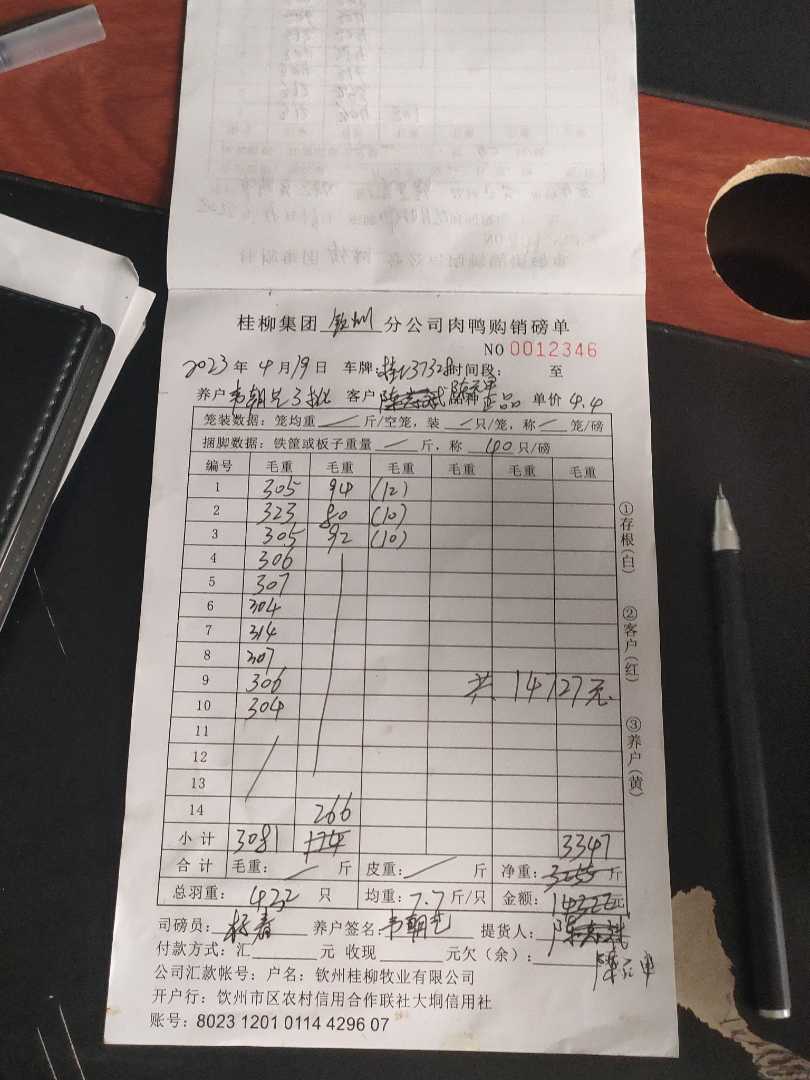 桂柳集团 钦州 分公司肉鸭购销磅单
NO 0012346
2023 年 4 月 19 日 车牌: 时间段: 至
养户 韦朝 客户 陈 品种 正品 单价 4.4
笼装数据:笼均重 斤/空笼,装 只/笼,称 笼/磅
捆脚数据:铁筐或板子重量 斤,称 40 只/磅
编号 毛重 毛重 毛重 毛重 毛重 毛重
1 305 94 (12)
2 323 80 (10)
3 305 92 (10)
4 306
5 307
6 304
7 314
8 307
9 306 共 14727元
10 304
11
12
13
14 266
小计 3081 174 3347
合计 毛重: 斤 皮重: 斤 净重:3255 斤
总羽重:432 只 均重:7.7 斤/只 金额:14322元
司磅员: 春 养户签名:韦朝 提货人:陈
付款方式:汇 元 收现 元欠(余):
陈
公司汇款帐号:户名:钦州桂柳牧业有限公司
开户行:饮州市区农村信用合作联社大垌信用社
账号:8023 1201 0114 4296 07
①存根(白) ②客户(红) ③养户(黄)